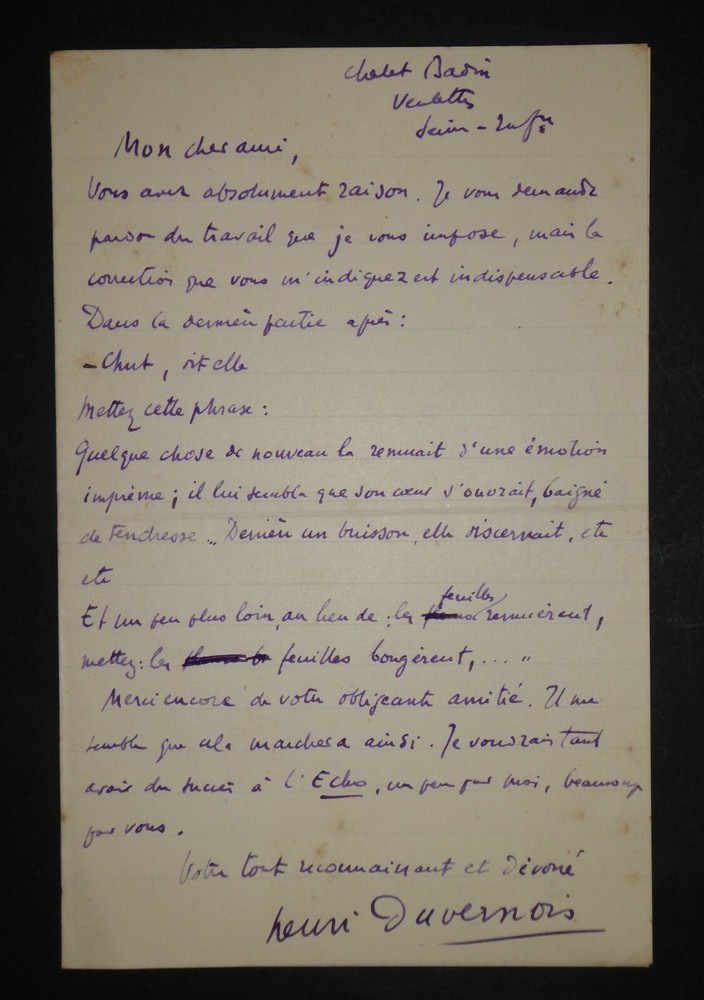 Chalet Badin
Veulettes
Seine-Infre
Mon cher ami,
Vous avez absolument raison. Je vous demande
pardon du travail que je vous impose, mais la
correction que vous m'indiquez est indispensable.
Dans la dernière partie après :
– Chut, dit elle
Mettez cette phrase :
Quelque chose de nouveau la remuait d'une émotion
imprévue ; il lui sembla que son cœur s'ouvrait, baigné
de tendresse... Derrière un buisson, elle discernait, etc
etc
Et un peu plus loin, au lieu de : les feuilles remuèrent,
mettez : les feuilles bougèrent, ... "
Merci encore de votre obligeante amitié. Il me
semble que cela marchera ainsi. Je voudrais tant
avoir du succès à l'Echo, un peu pour moi, beaucoup
pour vous.
Votre tout reconnaissant et dévoué
Henri Duvernois